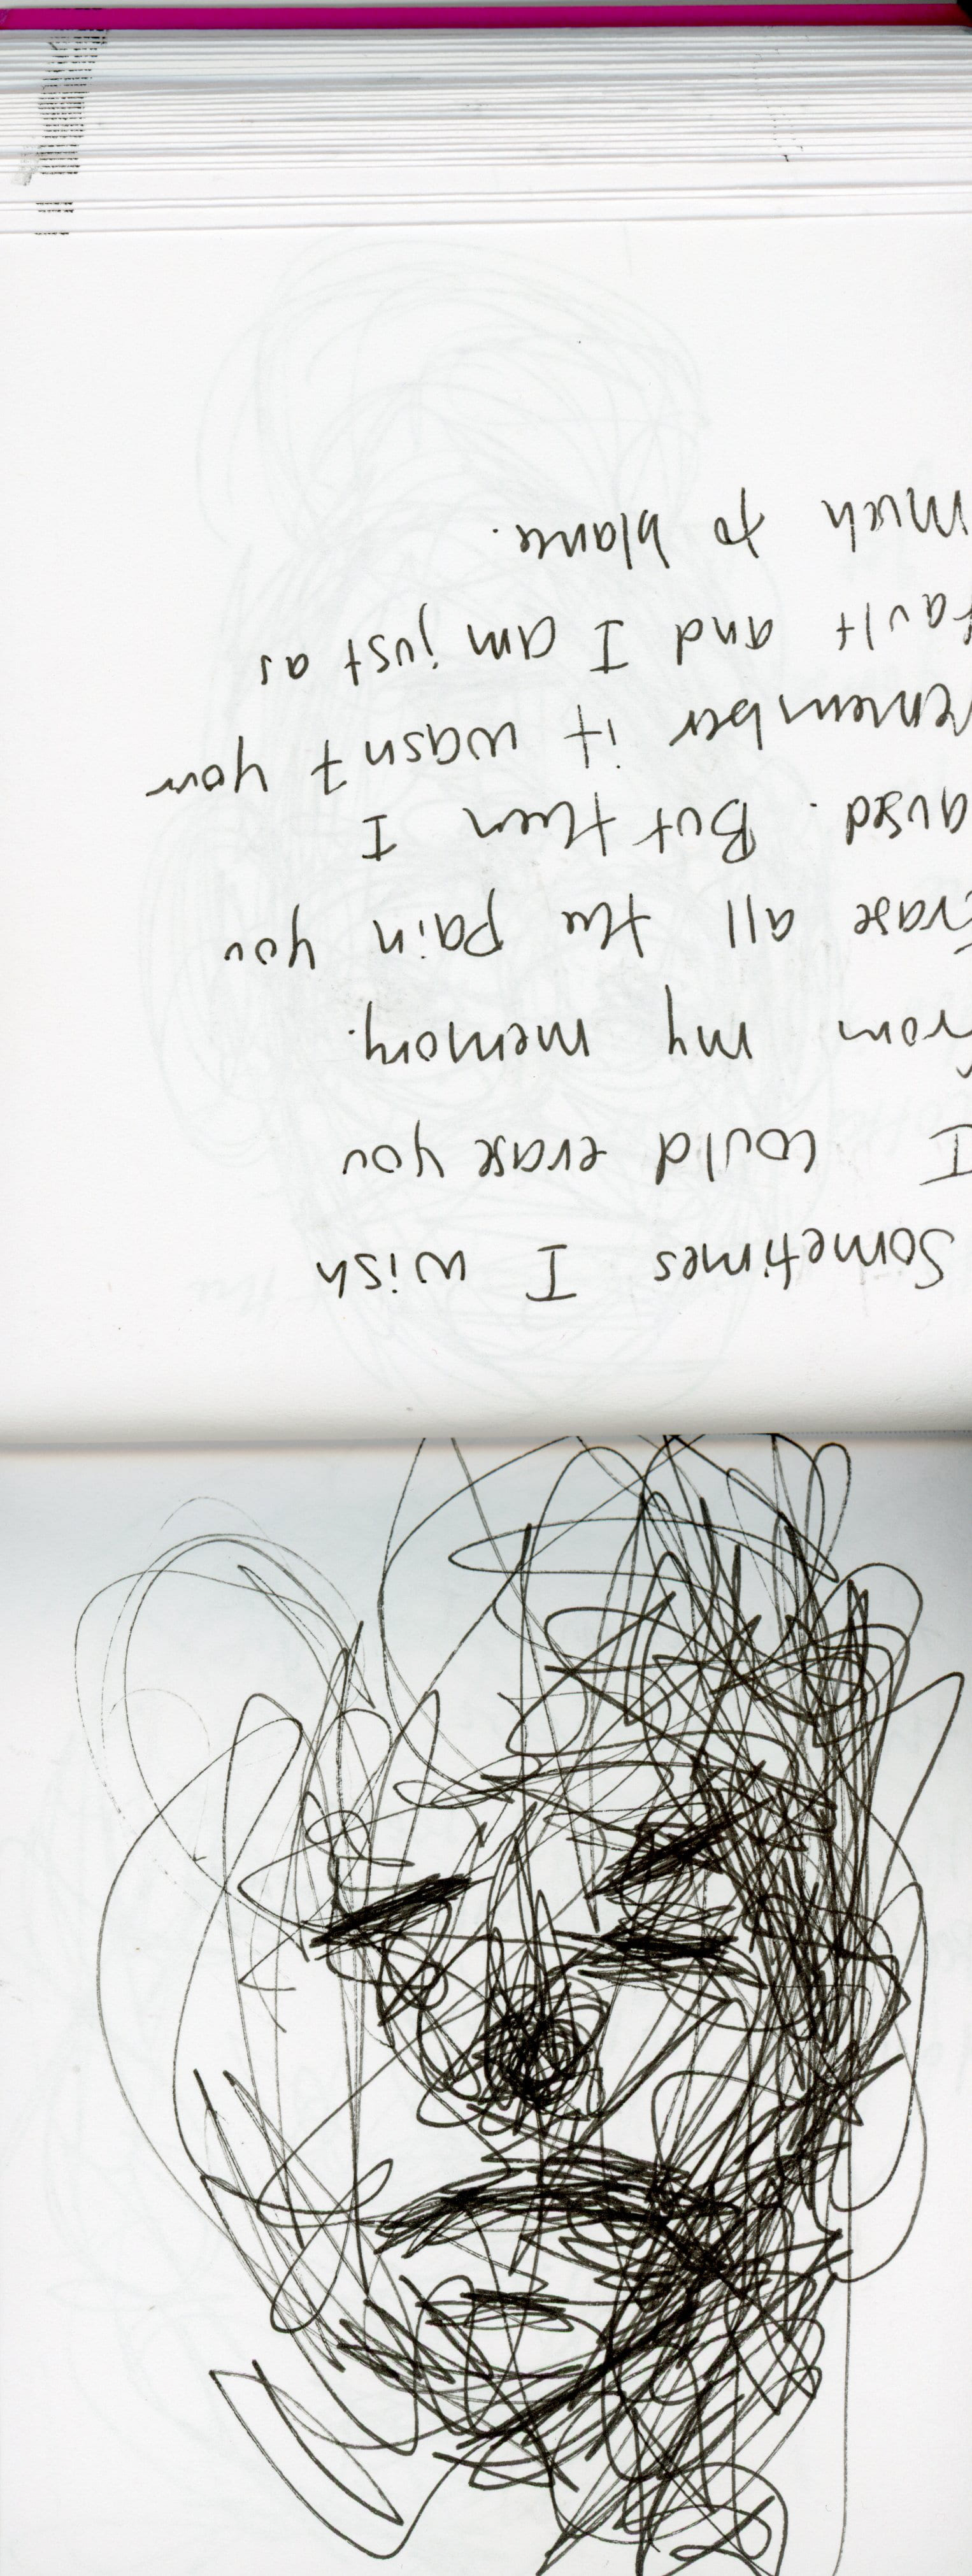 Sometimes I wish
I could erase you
from my memory.
Erase all the pain you
aused. But then I
remember it wasn't your
fault and I am just as
much to blame.